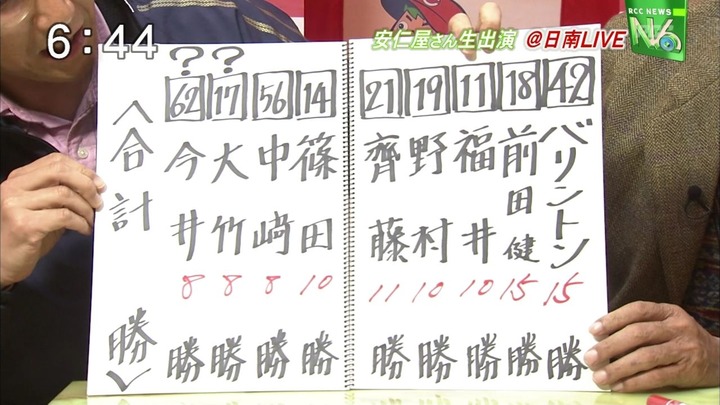 6:44
安仁屋さん生出演 @日南LIVE
RCC NEWS
N6
42 バリントン 15 勝
18 前田健 15 勝
11 福井 10 勝
19 野村 10 勝
21 齊藤 11 勝
14 篠田 10 勝
56 中﨑 8 勝
? 17 大竹 8 勝
? 62 今井 8 勝
合計 勝